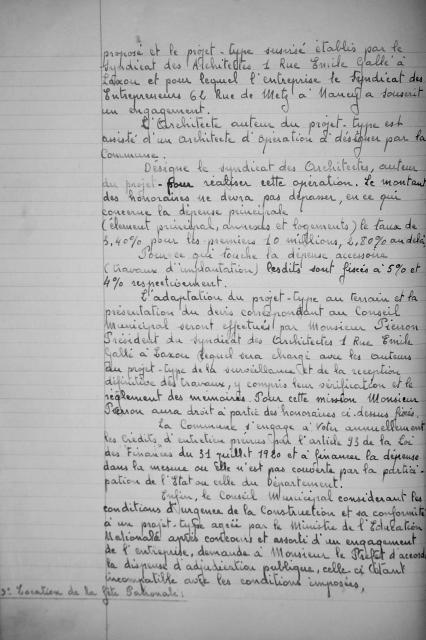 proposé et le projet-type susvisé établis par le
Syndicat des Architectes 1 Rue Emile Gallé à
Laxou et pour lequel l'entreprise le Syndicat des
Entrepreneurs 62 Rue de Metz à Nancy a souscrit
un engagement.
L'Architecte auteur du projet-type est
assisté d'un architecte d'opération à désigner par la
Commune.
Désigne le syndicat des Architectes, auteur
du projet-pour réaliser cette opération. Le montant
des honoraires ne devra pas dépasser, en ce qui
concerne la dépense principale
(élément principal, annexes et logements) le taux de
3,40% pour les premiers 10 millions, 2,80% au delà
Pour ce qui touche la dépense accessoire
(travaux d'implantation) lesdits sont fixés à 5% et
4% respectivement.
L'adaptation du projet-type au terrain et la
présentation du devis correspondant au Conseil
Municipal seront effectués par Monsieur Pierron
Président du syndicat des Architectes 1 Rue Emile
Gallé à Laxou lequel sera chargé avec les auteurs
du projet-type de la surveillance et de la réception
définitive des travaux, y compris leur vérification et le
règlement des mémoires. Pour cette mission Monsieur
Pierron aura droit à partie des honoraires ci-dessus fixés.
La Commune s'engage à voter annuellement
les crédits d'entretien prévus par l'article 93 de la Loi
des Finances du 31 juillet 1920 et à financer la dépense
dans la mesure où elle n'est pas couverte par la partici-
pation de l'Etat ou celle du Département.
Enfin, le Conseil Municipal considérant les
conditions d'urgence de la Construction et sa conformité
à un projet-type agréé par le Ministre de l'Education
Nationale après concours et assorti d'un engagement
de l'entreprise, demande à Monsieur le Préfet d'accorder
la dispense d'adjudication publique, celle ci étant
incompatible avec les conditions imposées,
Location de la fête Patronale: